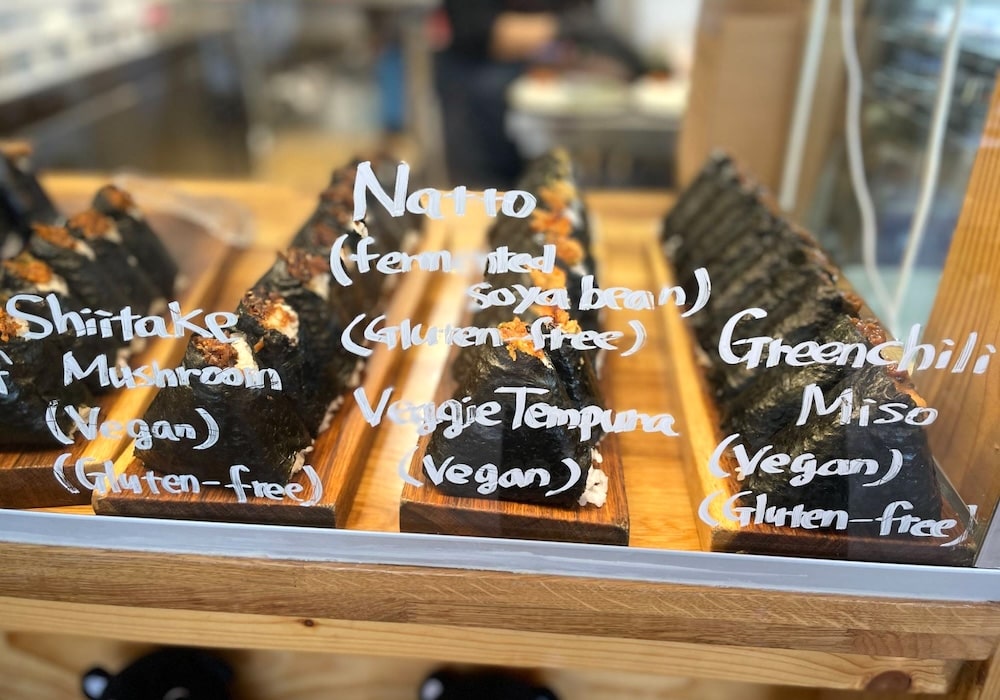 Shiitake
Mushroom
(Vegan)
(Gluten-free)
Natto
(fermented
soya bean)
(Gluten-free)
Veggie Tempura
(Vegan)
Greenchili
Miso
(Vegan)
(Gluten-free)